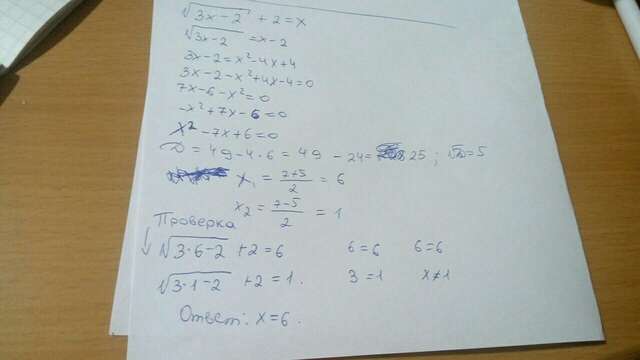 √3x-2 + 2 = x
√3x-2 = x-2
3x-2 = x²-4x+4
3x-2-x²+4x-4=0
7x-6-x²=0
-x²+7x-6=0
x²-7x+6=0
D = 49-4·6 = 49-24= 25; √D=5
x₁ = 7+5/2 = 6
x₂ = 7-5/2 = 1
Проверка
↓ √3·6-2 +2=6 6=6 6=6
√3·1-2 +2=1. 3=1 x≠1
Ответ: x=6.